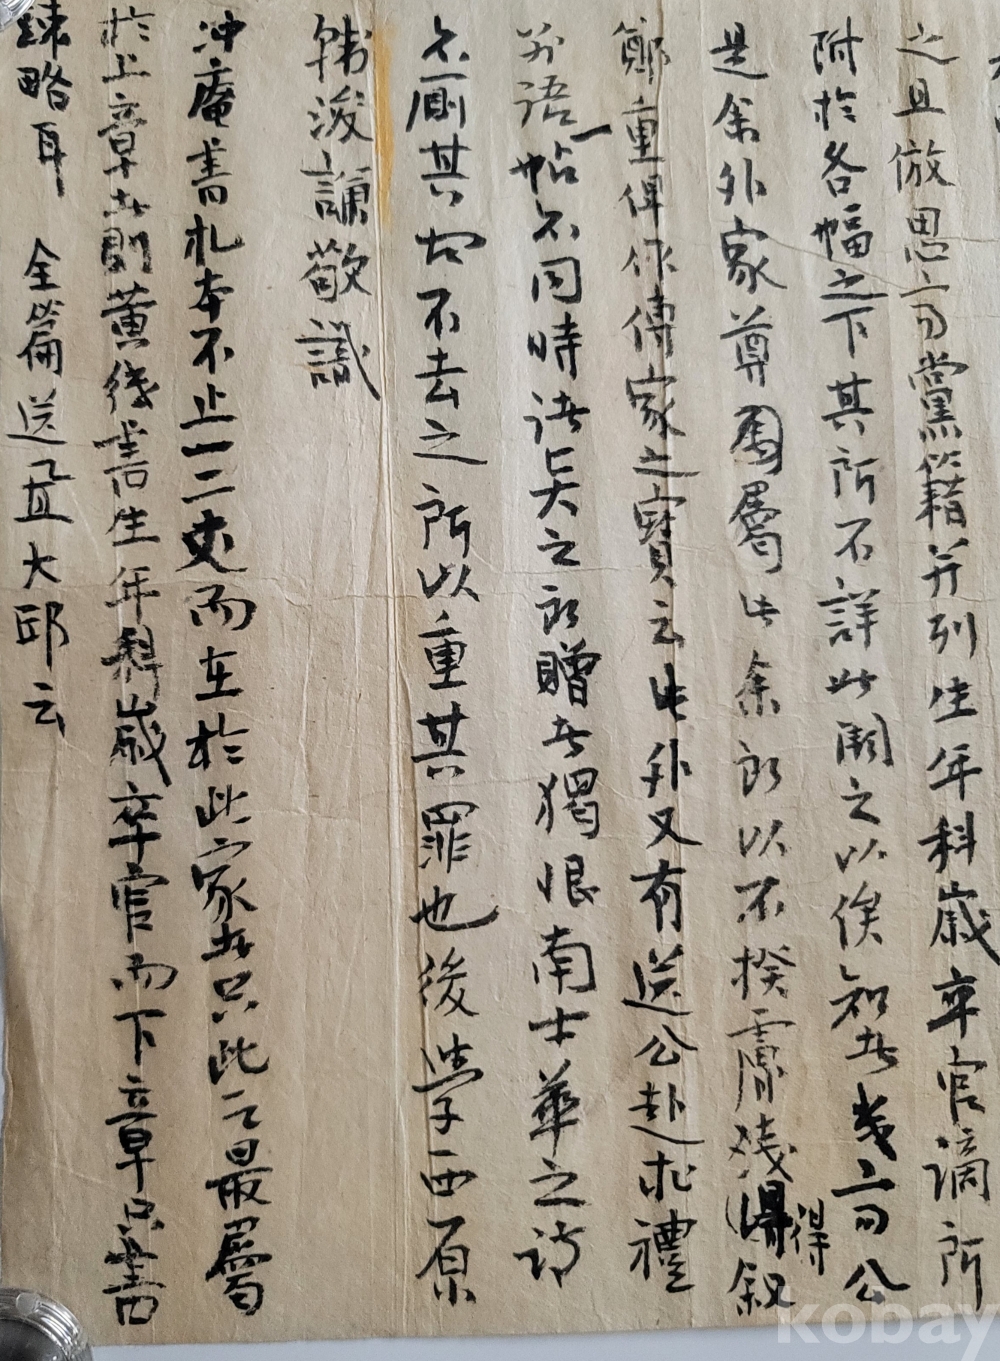 之且倣思齋黨籍并列生年科歲卒官謫所
附於各幅之下其所不詳此闕之以俟知者
是余外家尊屬 余 以不揆膚淺 得敍
鄭重俾作傳家之寶云 外又有送公赴 禮
語 帖不同時語 之 贈者獨恨南士華之詩
不厠其 不去之所以重其罪也後學西原
韓浚謙敬識
冲庵書札本不止一二 而在於此家者只此 最屬
於上章者則黃 書生年科歲卒官而下章只書
踈略耳 全篇送 大邱云
kobay